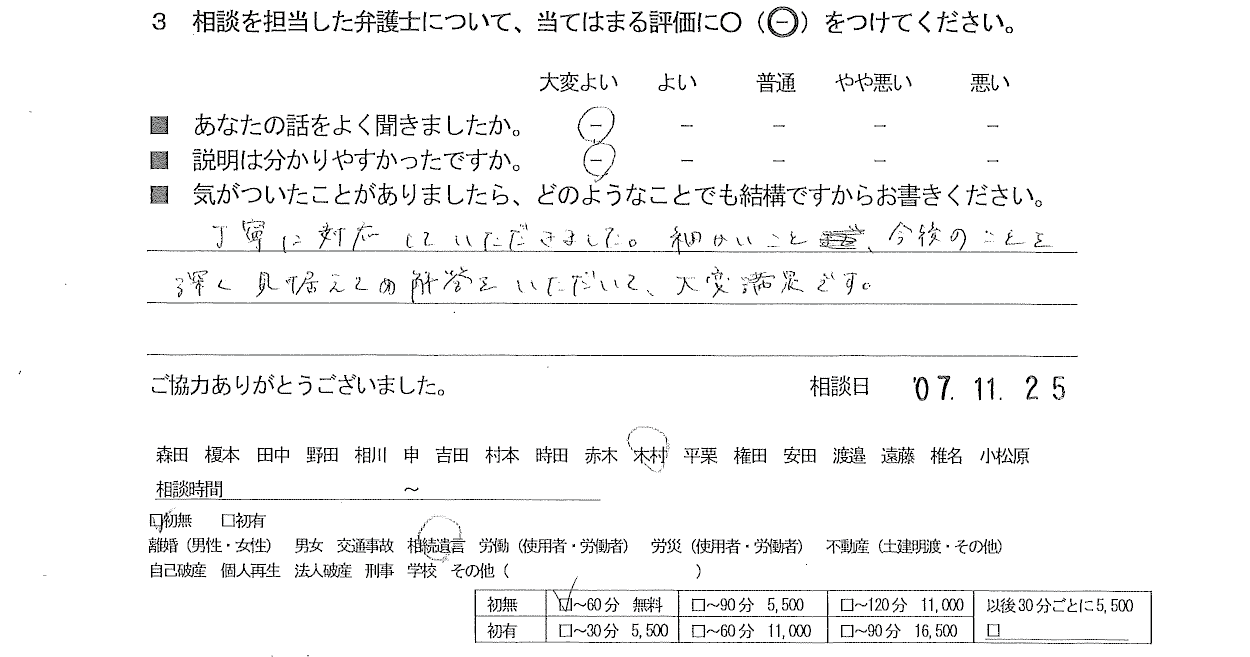 3 相談を担当した弁護士について、当てはまる評価に○（㊀）をつけてください。
大変よい よい 普通 やや悪い 悪い
■ あなたの話をよく聞きましたか。 － － － － －
■ 説明は分かりやすかったですか。 － － － － －
■ 気がついたことがありましたら、どのようなことでも結構ですからお書きください。
丁寧に対応していただきました。細かいこと、今後のことを
深く見据えての解答をいただいて、大変満足です。
ご協力ありがとうございました。 相談日 '07.11.25
森田 榎本 田中 野田 相川 申 吉田 村本 時田 赤木 木村 平栗 権田 安田 渡邉 遠藤 椎名 小松原
相談時間 ～
□初無 □初有
離婚（男性・女性） 男女 交通事故 相続遺言 労働（使用者・労働者） 労災（使用者・労働者） 不動産（土建明渡・その他）
自己破産 個人再生 法人破産 刑事 学校 その他（ ）
初無 □～60分 無料 □～90分 5,500 □～120分 11,000 以後30分ごとに5,500
初有 □～30分 5,500 □～60分 11,000 □～90分 16,500 □